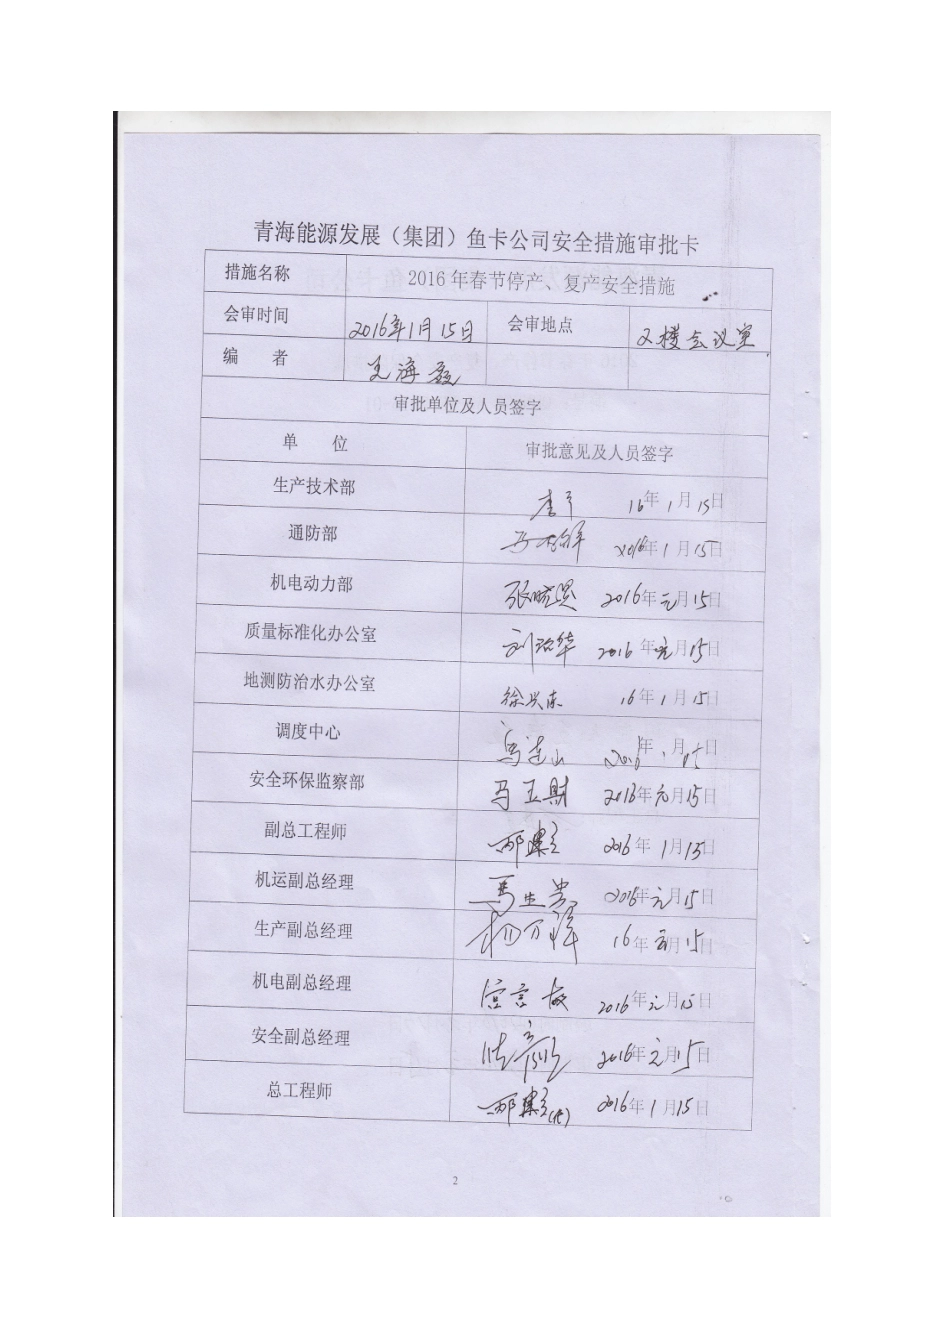 青海能源发展（集团）鱼卡公司安全措施审批卡
措施名称 2016年春节停产、复产安全措施
会审时间 2016年1月15日 会审地点 又楼会议室
编 者 海
审批单位及人员签字
单 位 审批意见及人员签字
生产技术部 李 16年1月15日
通防部 2016年1月15日
机电动力部 张 2016年元月15日
质量标准化办公室 刘治华 2016年元月15日
地测防治水办公室 徐兴东 16年1月15日
调度中心 山 2016年1月15日
安全环保监察部 马玉财 2016年元月15日
副总工程师 2016年1月15日
机运副总经理 馬生贵 2016年元月15日
生产副总经理 杨万祥 16年元月15日
机电副总经理 2016年元月15日
安全副总经理 2016年元月15日
总工程师 (代) 2016年1月15日
2